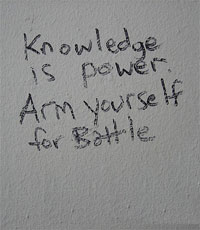 Knowledge
is power.
Arm yourself
for Battle